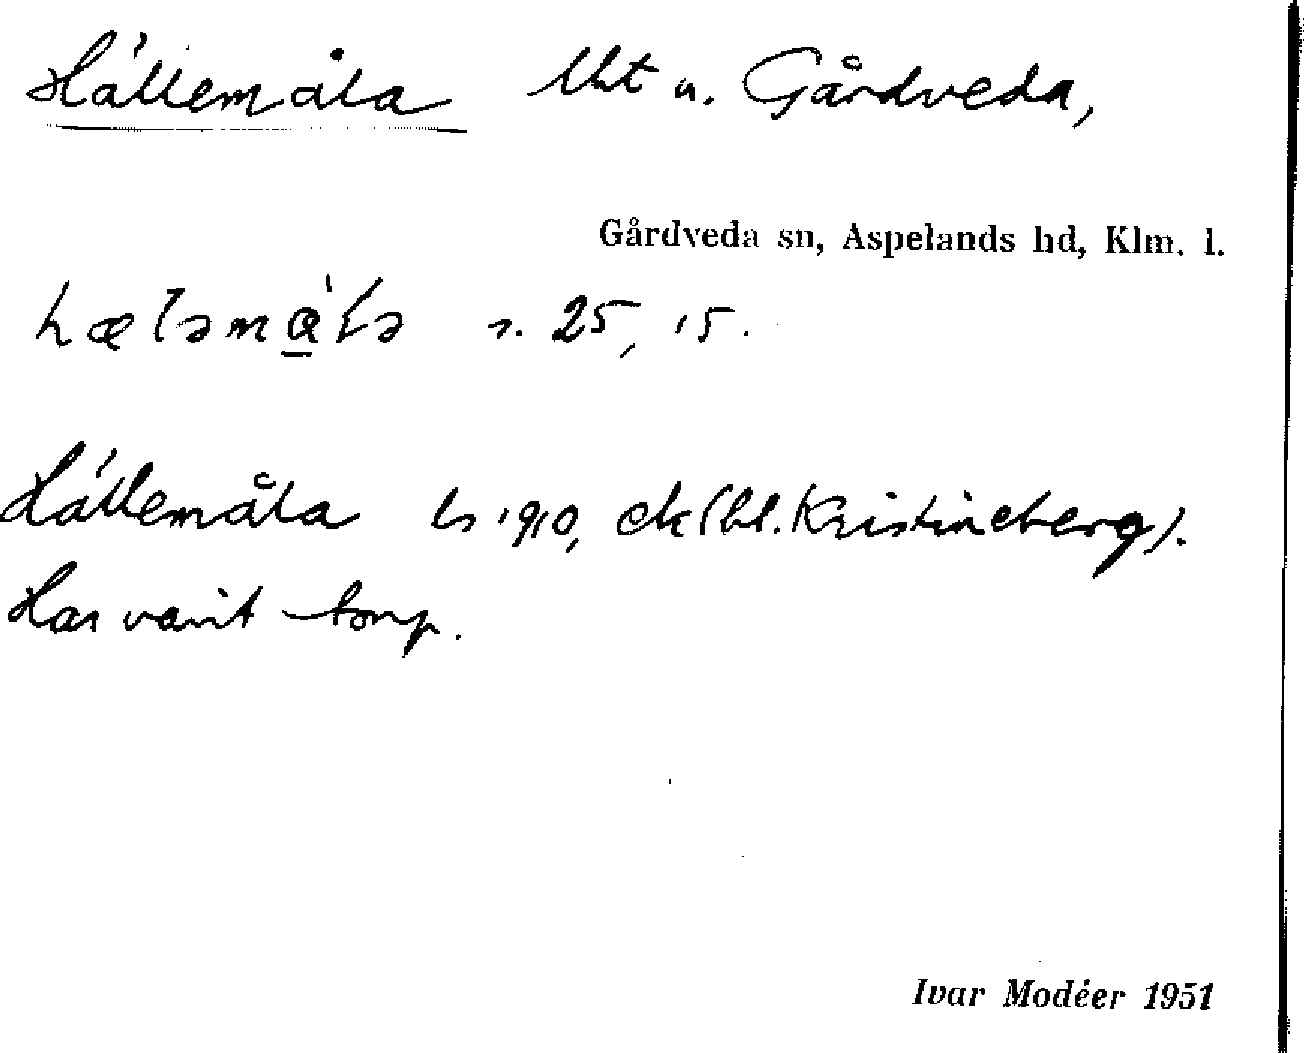 Hällemåla lht u. Gårdveda,
Gårdveda sn, Aspelands hd, Klm. l.
s. 25, 15.
Hällemåla ls 1910, ek (bl. Kristineberg).
Har varit torp.
Ivar Modéer 1951